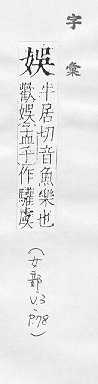 字彙
娛
牛居切音魚樂也
歡娛孟子作驩虞
(女部 V3 P78)